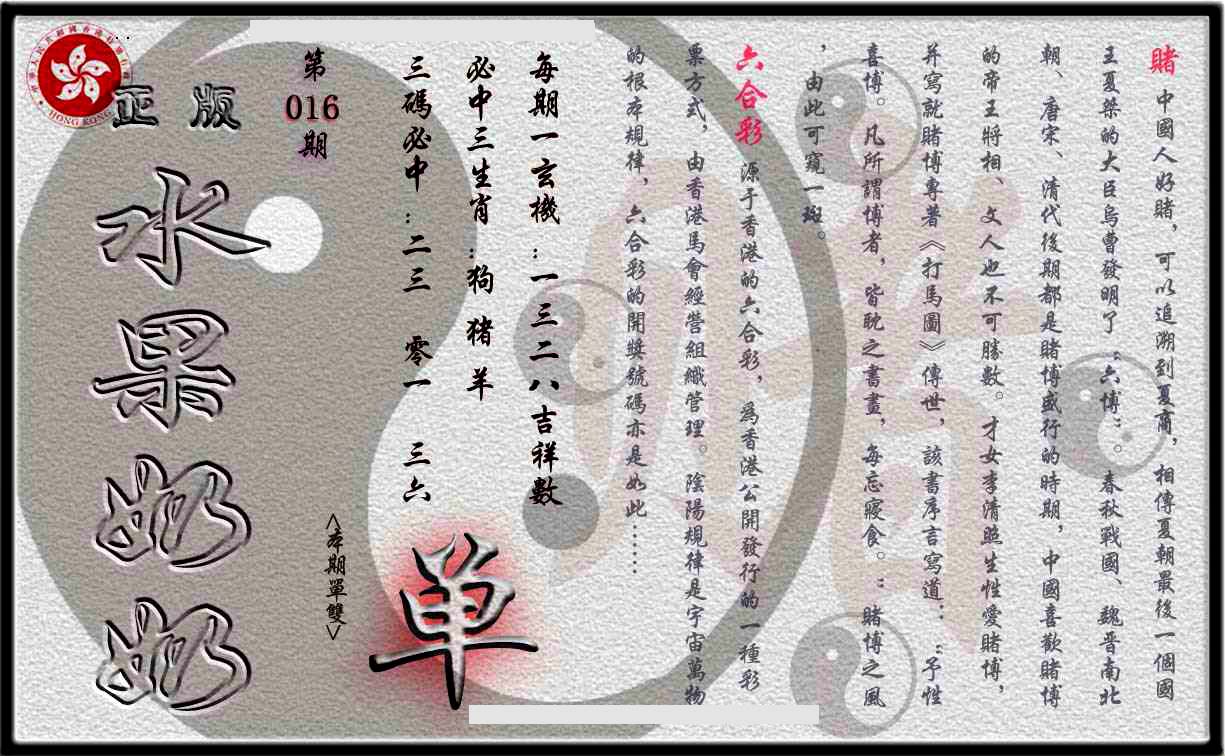 賭 中國人好賭，可以追溯到夏商，相傳夏朝最後一個國
王夏桀的大臣烏曹發明了“六博”。春秋戰國、魏晋南北
朝、唐宋、清代後期都是賭博盛行的時期，中國喜歡賭博
的帝王將相、文人也不可勝數。才女李清照生性愛賭博，
并寫就賭博專著《打馬圖》傳世，該書序言寫道：“予性
喜博。凡所謂博者，皆耽之書畫，每忘寢食。”賭博之風
，由此可窺一斑。
六合彩 源于香港的六合彩，為香港公開發行的一種彩
票方式，由香港馬會經營組織管理。陰陽規律是宇宙萬物
的根本規律，六合彩的開獎號碼亦是如此……
每期一玄機：一三二八吉祥數
必中三生肖：狗 猪 羊
三碼必中：二三 零一 三六
单
<本期單雙>
第
016
期
正版
水果奶奶
HONG KONG